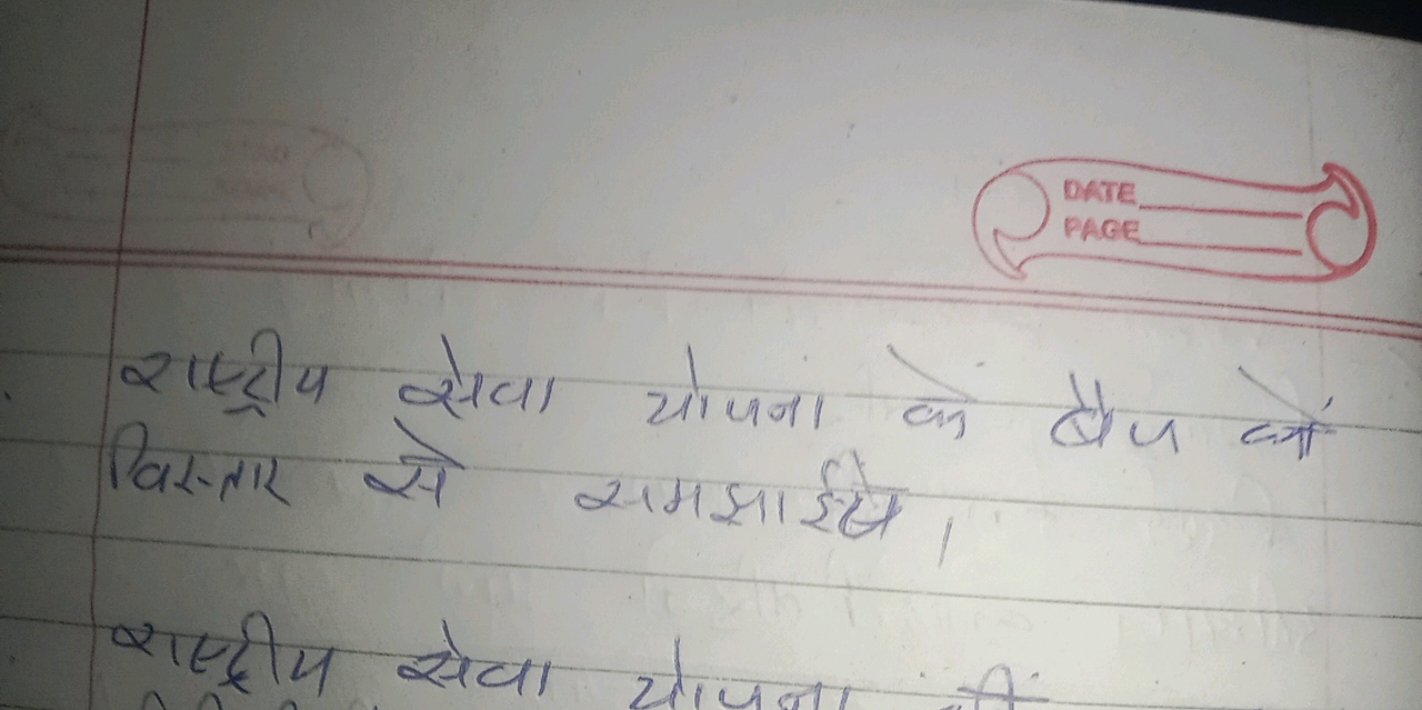 DATE
PAGE
राष्ट्रीय सेवा योजना के बैज को
विस्तार से समझाईये।
राष्ट्रीय सेवा योजना